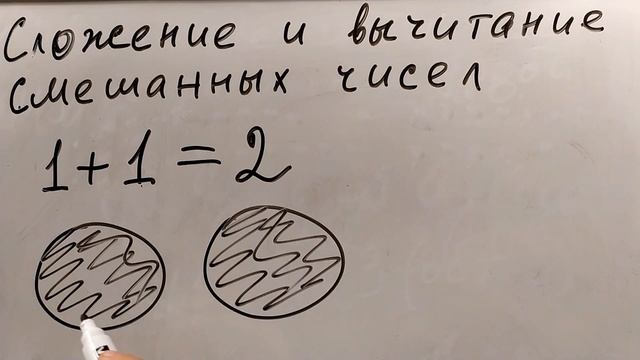 Сложение и вычитание
смешанных чисел
1+1=2